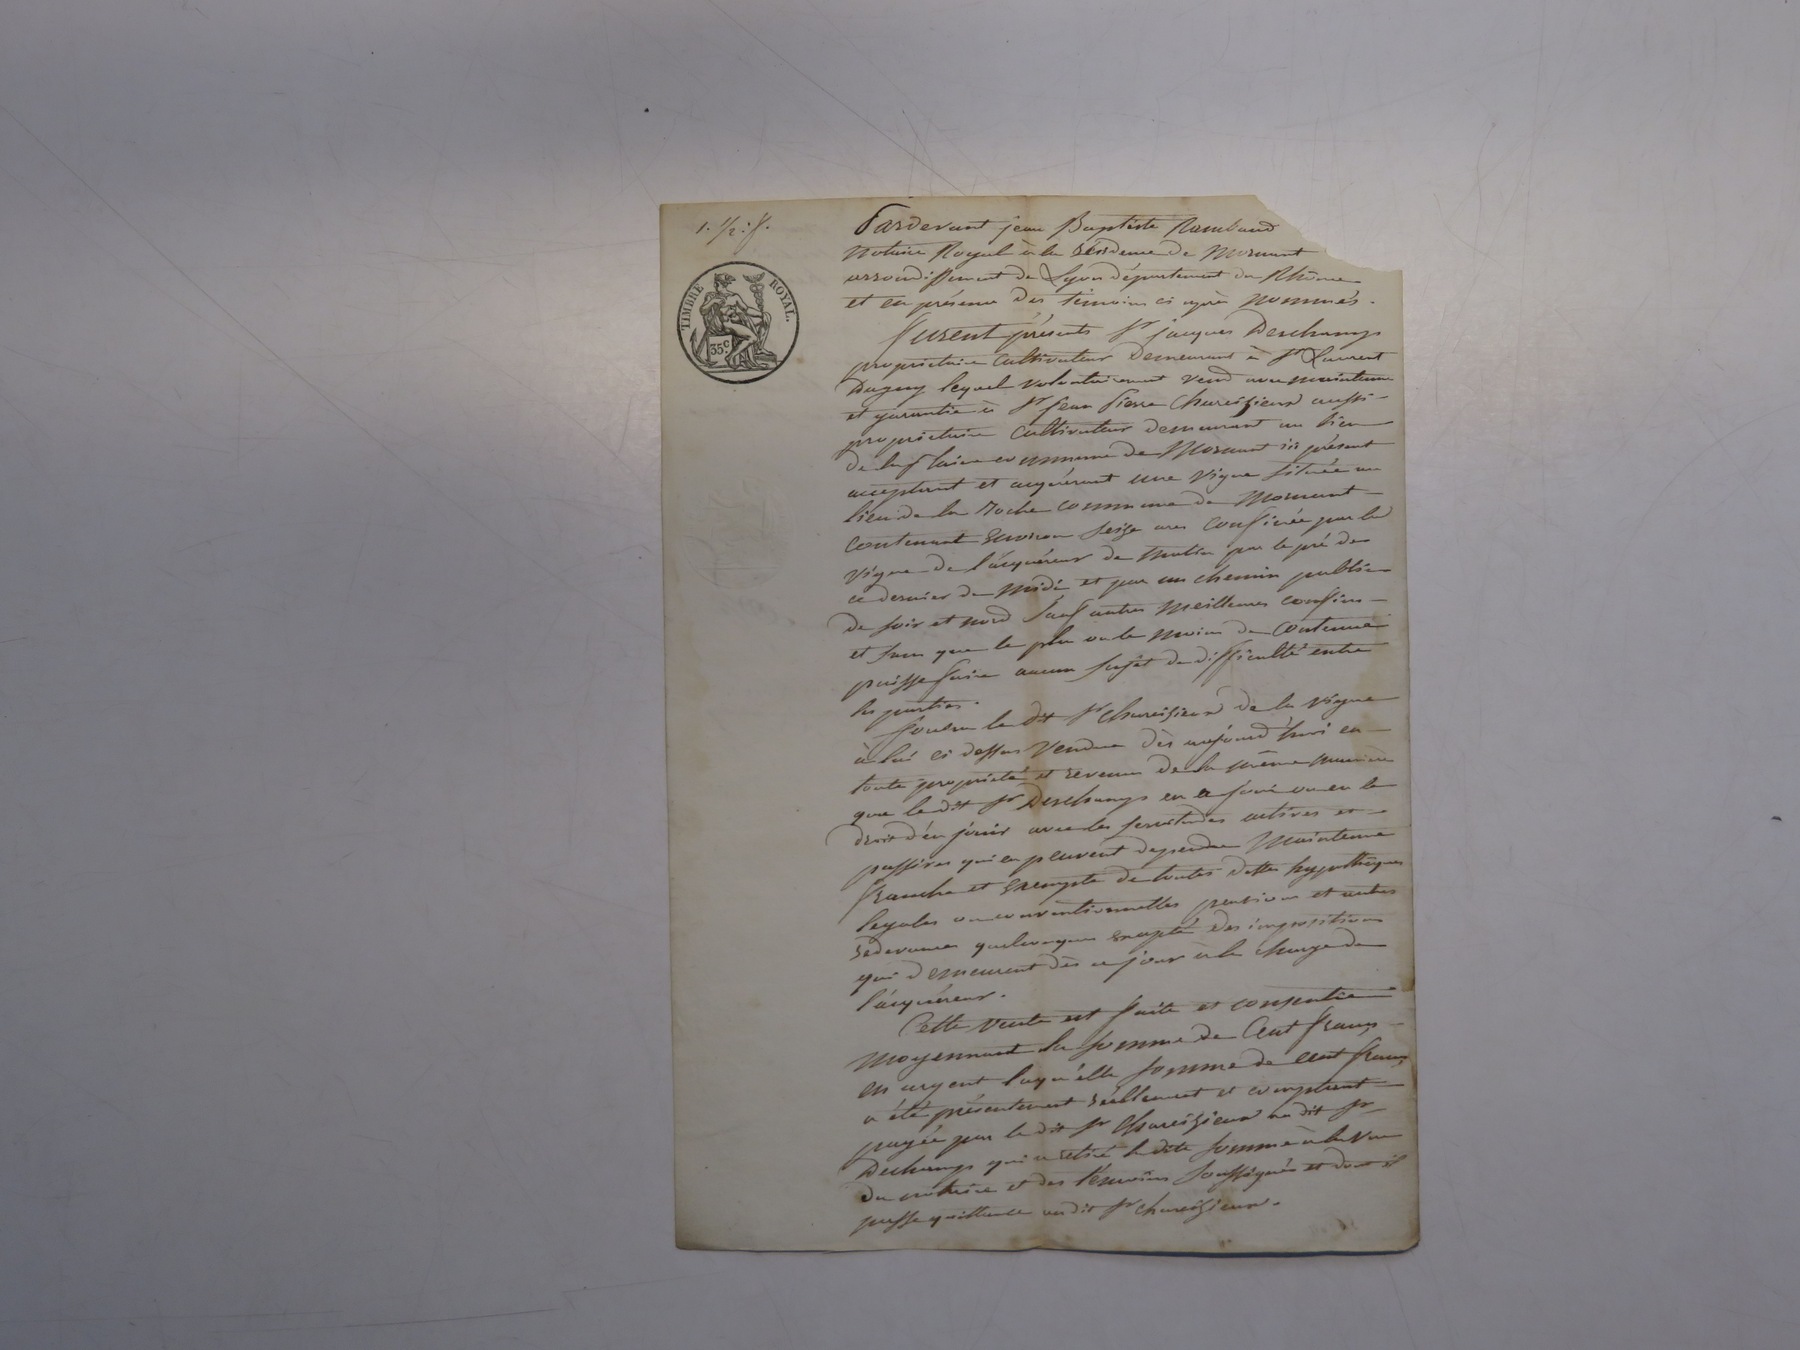 1. 1/2. f.
TIMBRE ROYAL.
35c
Pardevant jean Baptiste Rambaud
Notaire Royal à la résidence de Mornant
arrondissement de Lyon département du Rhône
et en présence des témoins ci après nommés.
Furent présents Sr jacques Deschamps
propriétaire cultivateur demeurant à St Laurent
Dagny lequel volontairement vend avec maintenue
et garantie à Sr jean Pierre Chareizieux aussi
propriétaire cultivateur demeurant au lieu
de la plaine commune de Mornant ici présent
acceptant et acquérant une vigne située au
lieu de la Roche commune de Mornant
contenant environ seize ares confinée par la
vigne de l'acquéreur de matin par le pré de
ce dernier de midi et par un chemin public
de soir et nord sauf autres meilleures confins
et sans que le plus ou le moins de contenue
puisse faire aucun sujet de difficulté entre
les parties.
Jouira le dit Sr Chareizieux de la vigne
à lui ci dessus vendue dès aujourd'hui en
toute propriété et revenu de la même manière
que le dit Sr Deschamps en a joui ou eu le
droit d'en jouir avec les servitudes actives et
passives qui en peuvent dependre Maintenue
franche et exempte de toutes dettes hypothèques
legales ou conventionnelles pensions et autres
redevances quelconques excepté des impositions
qui demeurent dès ce jour à la charge de
l'acquéreur.
Cette vente est faite et consentie
moyennant la somme de Cent francs
en argent laqu'elle somme de cent francs
a été présentement réellement et comptant
payée par le dit Sr Chareizieux au dit Sr
Deschamps qui a retiré la dite somme à la vue
du notaire et des témoins soussignés et dont il
passe quittance au dit Sr Chareizieux.